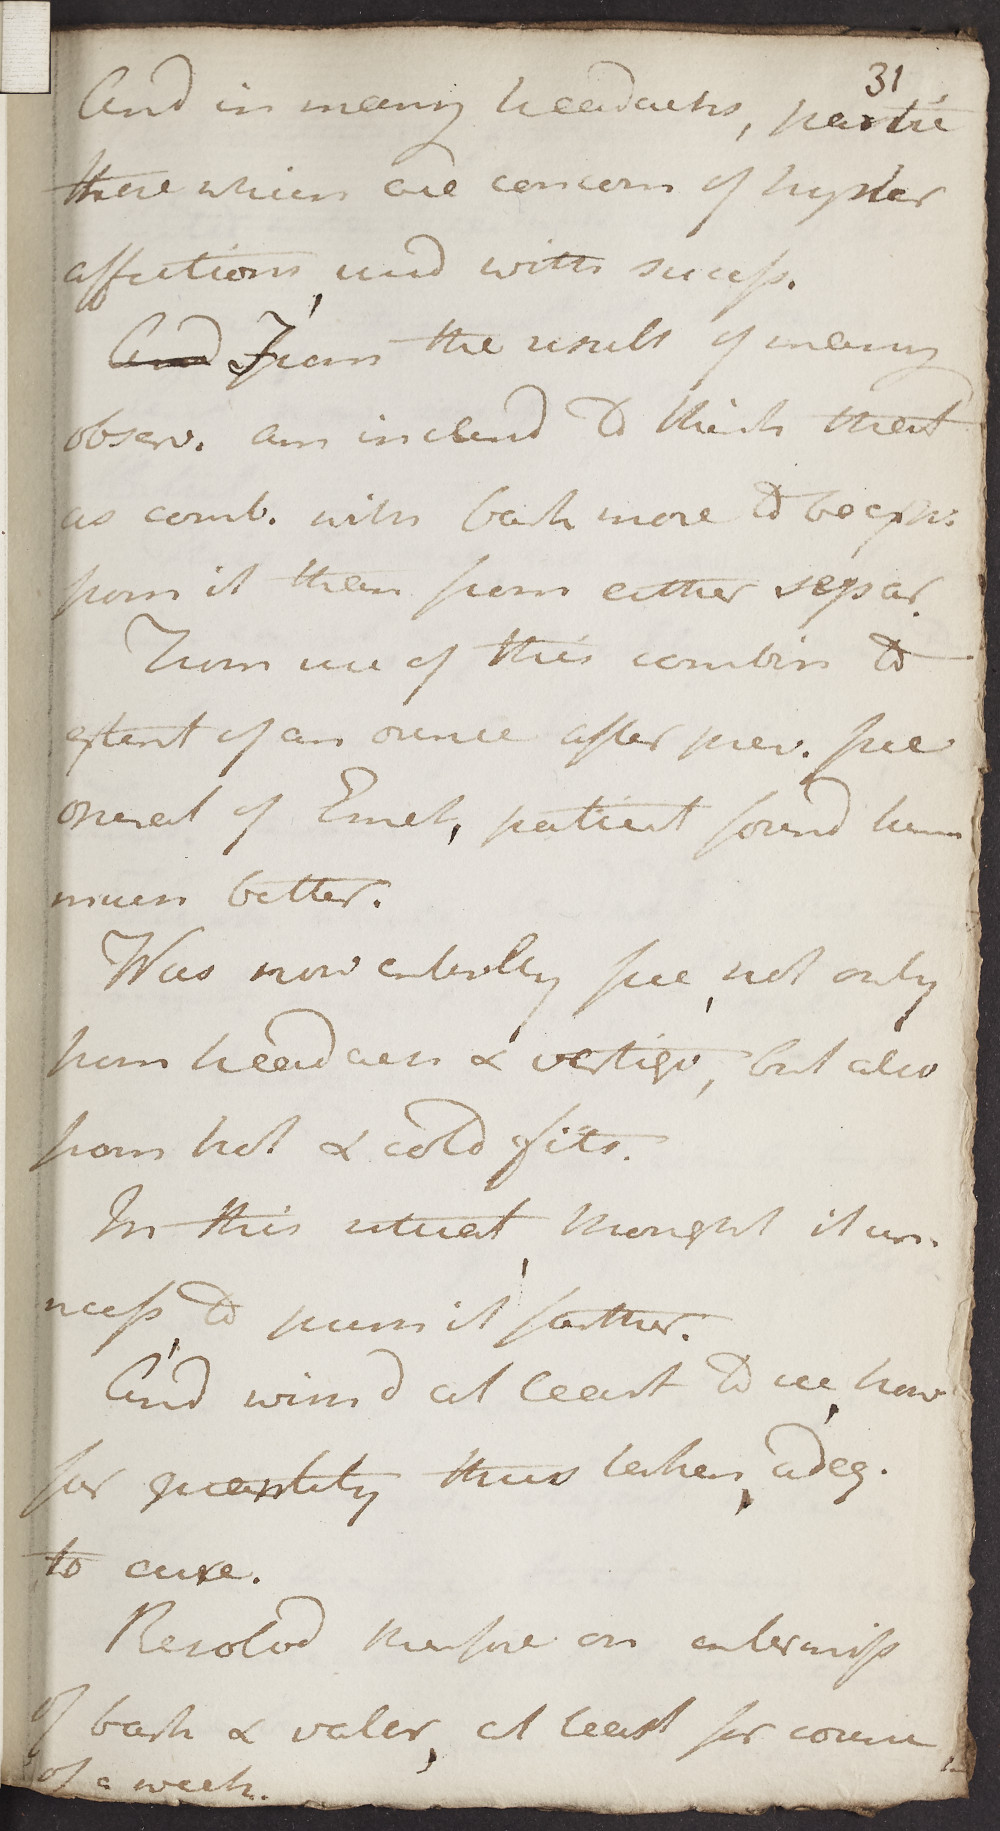 31
And in many headachs, partic
those which are concom of hyster
affections, used with success.
And From the result of many
observ. am inclind to think that
as comb. with bark more to be exp.
from it than from either separ.
From use of this combin to
extent of an ounce after prev. free
operat of Emet, patient found him
much better.
Was now entirely free, not only
from headach & vertigo, but also
from hot & cold fits.
In this situat, thought it un
necess, to push it farther.
And wishd at least to see, how
far quantity thus taken, adeq.
to cure.
Resolvd therefore on intermiss
of bark & valer, at least for course
of a week.